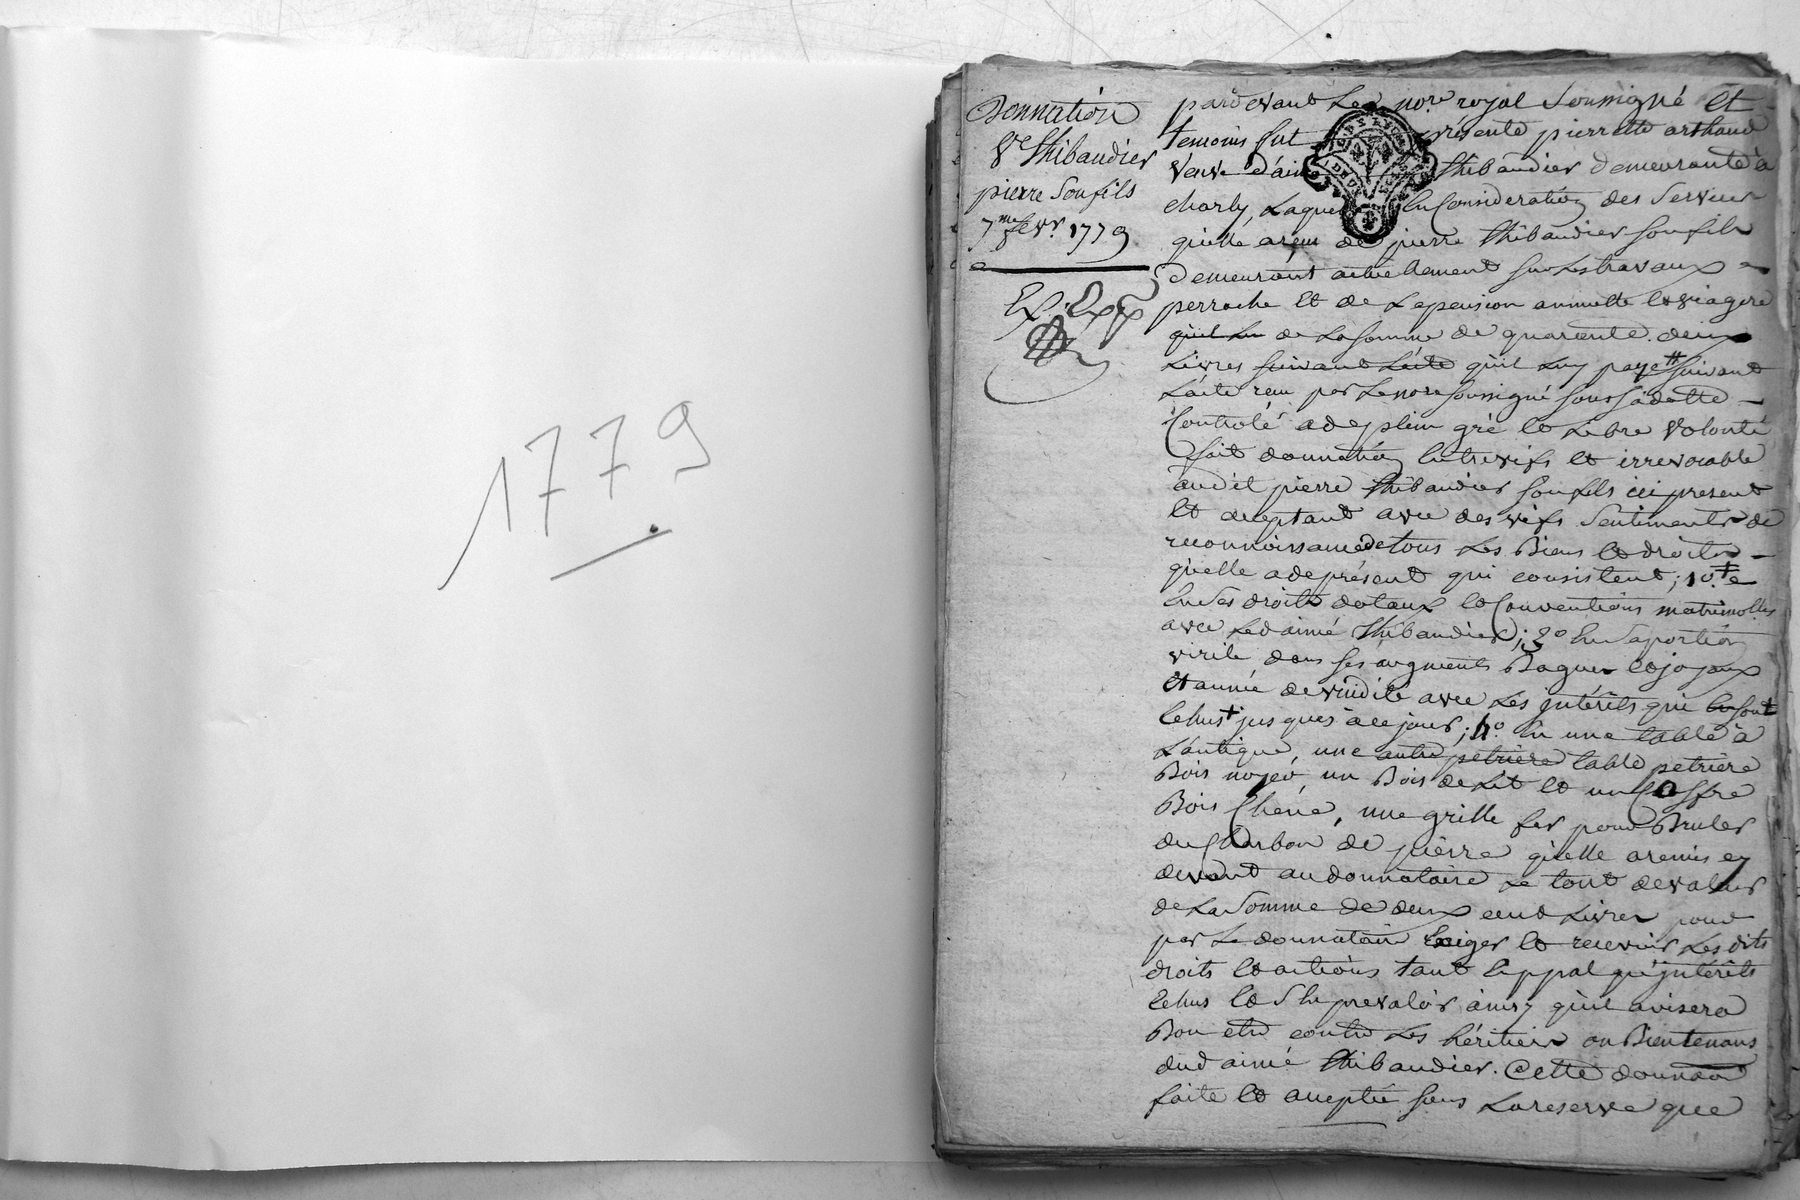 1779
Donnation
Ve Thibaudier
pierre Son fils
7me fevr. 1779
pardevant Le nore royal Soussigné Et
temoins fut présente pierrette arthaud
Veuve d'aimé Thibaudier demeurante à
charly, Laquelle En Consideration des Services
qu'elle a reçu de pierre Thibaudier son fils
demeurant actuellement sur Les travaux
perrache Et de La pension annuelle Et viagere
qu'il Lui de La somme de quarente deux
Livres suivant L'acte qu'il Luy paye suivant
L'acte reçu par Le nore soussigné sous sa datte
Controlé a de son plein gré Et Libre Volonté
fait donnation Entrevifs Et irrevocable
audit pierre Thibaudier son fils ici present
Et acceptant avec des vifs Sentiments de
reconnoissance de tous Les Biens Et droits
qu'elle a de présent qui consistent; 1o.
En Ses droits dotaux Et Conventions matrimolles
avec Led aimé Thibaudier; 3o En Sa portion
virile dans ses augments Bagues Et joyaux
Et année de viduité avec Les jntérêts qui En sont
Echus jusques à ce jour; 4o. En une table à
L'antique, une autre petriere table petriere
Bois noyer, un Bois de Lit Et un Coffre
Bois Chêne, une grille fer pour Bruler
du Charbon de pierre qu'elle a remis cy
devant au donnataire Le tout de valeur
de La Somme de deux cent Livres pour
par Le donnataire Exiger Et recevoir Les dits
droits Et actions tant En ppal qu'jntérêts
Echus Et S'En prevaloir ainsy qu'il avisera
Bon etre contre Les héritiers ou Bientenans
dud aimé Thibaudier. Cette donnaon
faite Et acceptée sous La reserve que